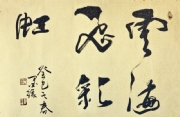 雲海
飛彩
虹
癸巳之春